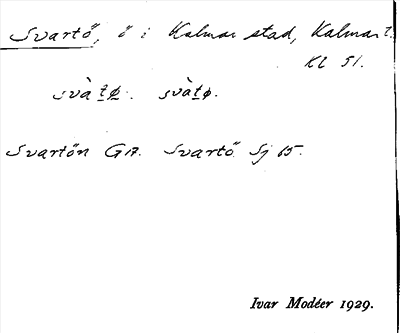 Svartö, ö i Kalmar stad, Kalmar l.
Kl 51.
svàtø. svàtø.
Svartön G 17. Svartö Sj 65.
Ivar Modéer 1929.